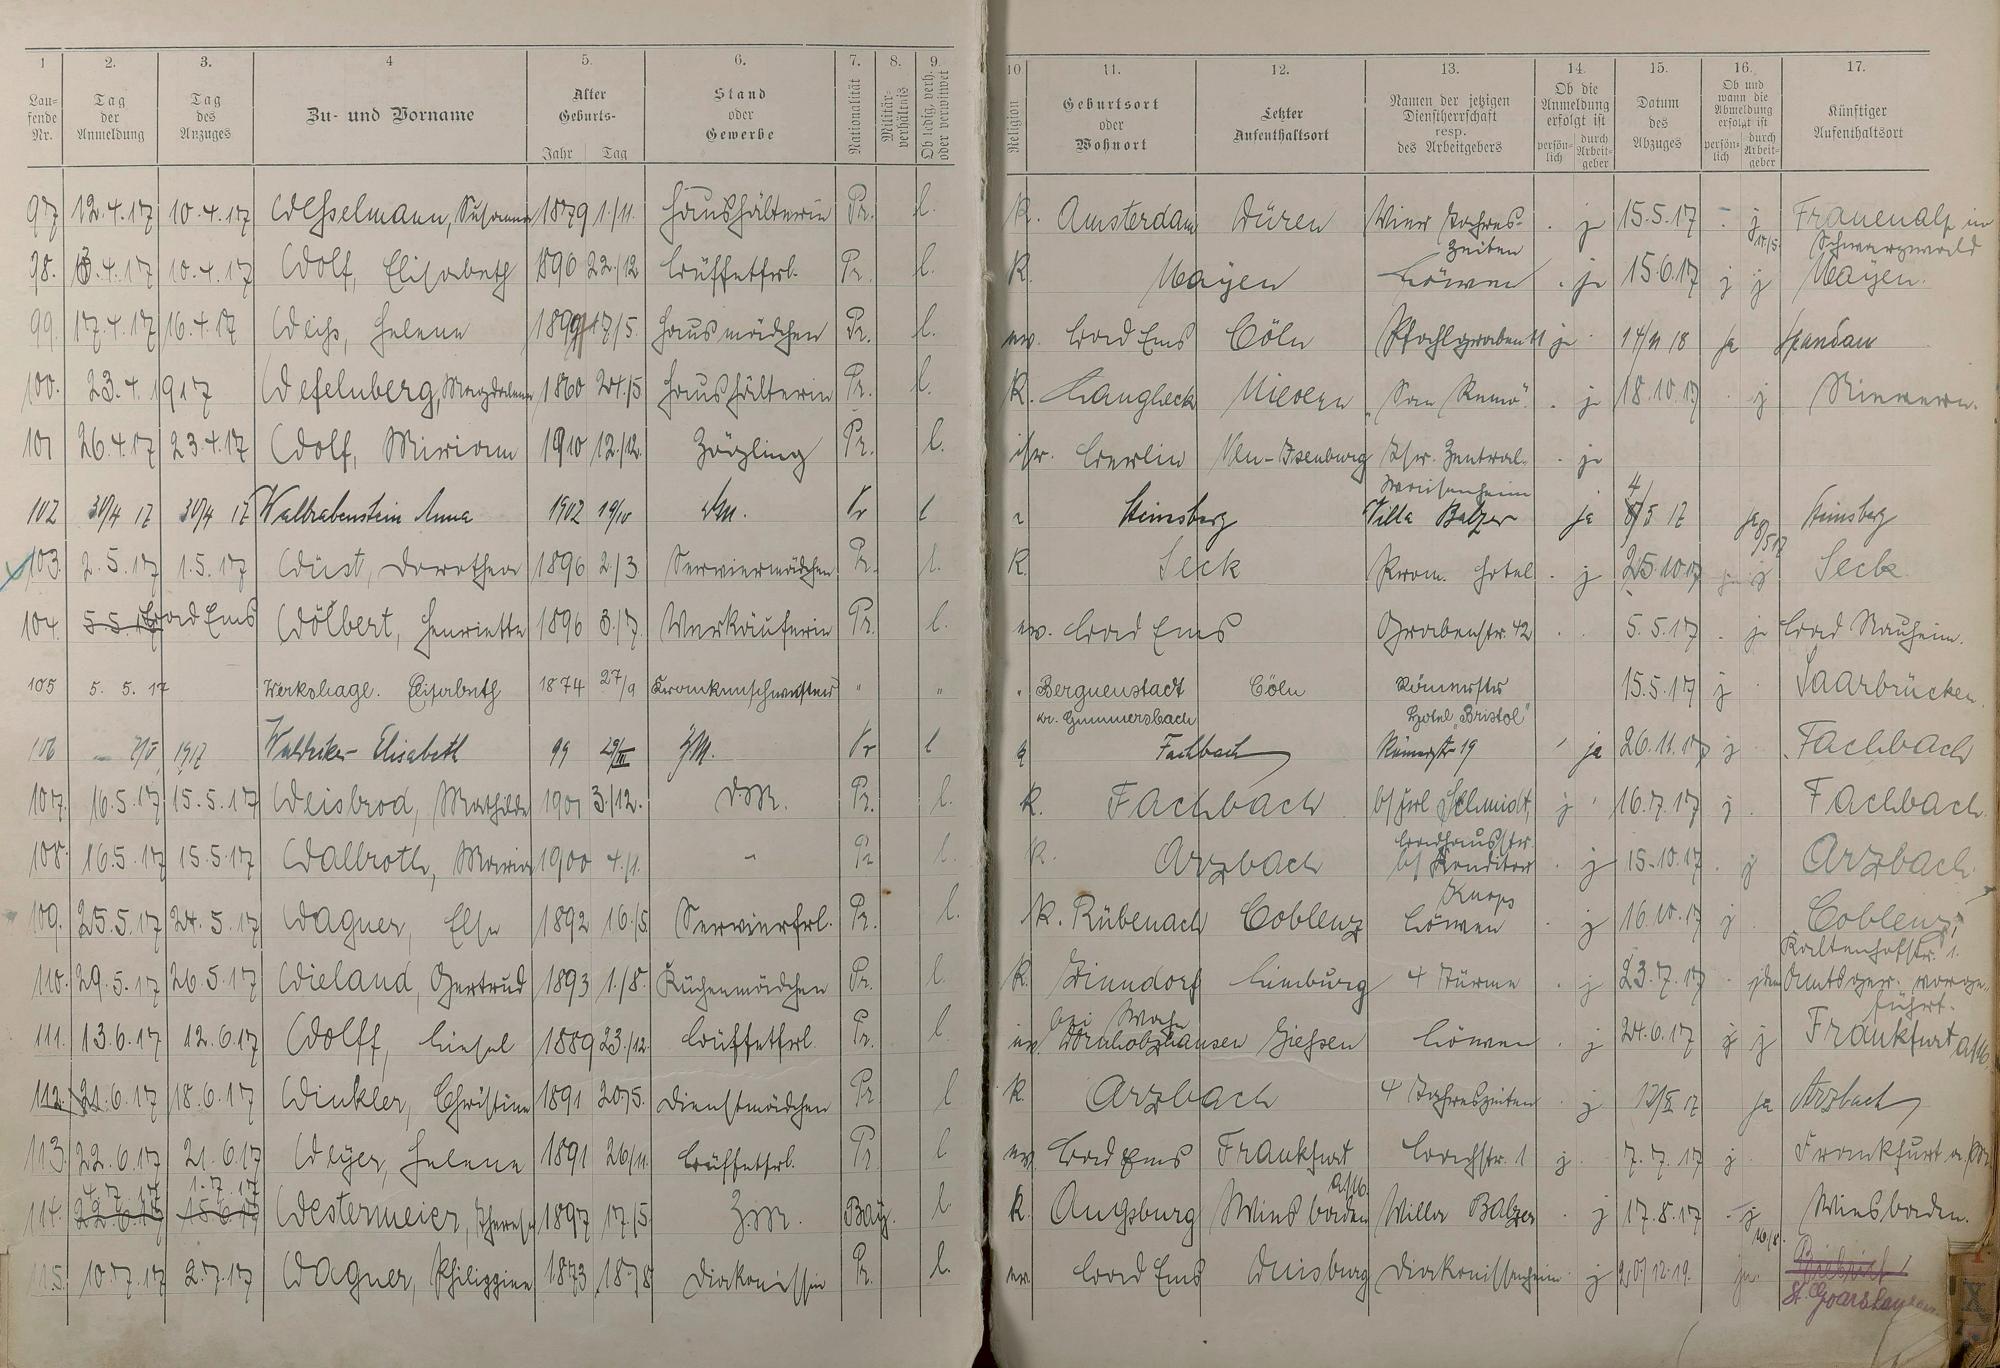 1 2. 3. 4 5. 6. 7. 8. 9. 10 11. 12. 13. 14. 15. 16. 17.
Laufende Nr.
Tag der Anmeldung
Tag des Anzuges
Zu- und Vorname
Alter Geburts-
Jahr Tag
Stand oder Gewerbe
Nationalität
Militärverhältnis
Ob ledig, verh. oder verwitwet
Religion
Geburtsort oder Wohnort
Letzter Aufenthaltsort
Namen der jetzigen Dienstherrschaft resp. des Arbeitgebers
Ob die Anmeldung erfolgt ist
persönlich durch Arbeitgeber
Datum des Abzuges
Ob und wann die Abmeldung erfolgt ist
persönlich durch Arbeitgeber
Künftiger Aufenthaltsort
97 12.4.17 10.4.17 Wesselmann, Susanna 1879 1./11. Haushälterin Pr. l. K. Amsterdam Düren Vier Jahres- . j 15.5.17 - j Frauenalp im
zeiten 14/5. Schwarzwald
98. 13.4.17 10.4.17 Wolf, Elisabeth 1890 22./12 Büffetfrl. Pr. l. K. Mayen Löwen . j 15.6.17 j j Mayen.
99. 17.4.17 16.4.17 Weiß, Helene 1899 17/5. Hausmädchen Pr. l. ev. Bad Ems Cöln Pfahlgraben 11 j . 14/11 18 ja Spandau
100. 23.4.1917 Wefelnberg, Magdalena 1860 24./5 Haushälterin Pr. l. K. Langheck Nievern "San Remo" . j 18.10.17 . j Nievern.
101 26.4.17 23.4.17 Wolf, Miriam 1910 12./12. Zögling Pr. l. isr. Berlin Neu-Isenburg Isr. Zentral- . j
Waisenheim
102 30/4 17 30/4 17 Walrabenstein Anna 1902 19/10 DM. Pr l Steinsberg Villa Balzer ja 4/5 17 ja Steinsberg
8/5 17
103. 2.5.17 1.5.17 Wüst, Dorothea 1896 2/3 Serviermädchen Pr. l. K. Seck Krom. Hotel . j 25.10.17 j Seck.
104. 5.5.17 Bad Ems Wölbert, Henriette 1896 3./7. Verkäuferin Pr. l. ev. Bad Ems Grabenstr. 42 . . 5.5.17 . j Bad Nauheim.
105 5.5.17 Werkshage. Elisabeth 1874 27/9 Krankenschwester " " " Berguenstadt Cöln Römerstr 15.5.17 j Saarbrücken.
Kr. Gummersbach Hotel "Bristol"
106 1917 Elisabeth 99 29/III ZM. Pr l Fachbach Römerstr 19 ja 26.11.17 j . Fachbach
107. 16.5.17 15.5.17 Weisbrod, Mathilde 1901 3./12. DM. Pr. l. K. Fachbach b/ Frl Schmidt, j . 16.7.17 j . Fachbach.
Badhausstr.
108. 16.5.17 15.5.17 Wallroth, Maria 1900 4./1. " Pr l. K. Arzbach b/ Konditor . j 15.10.17 . j Arzbach
Knops
109. 25.5.17 24.5.17 Wagner, Else 1892 16./5 Servierfrl. Pr. l. K. Rübenach Coblenz Löwen . j 16.10.17 j Coblenz,
Kaltenhofstr. 1.
110. 29.5.17 26.5.17 Wieland, Gertrud 1893 1./8. Küchenmädchen Pr. l. K. Zinndorf Limburg 4 Türme . j 23.7.17 . j dem Amtsger. vorge-
führt.
111. 13.6.17 12.6.17 Wolff, Liesel 1889 23./12. Büffetfrl. Pr. l. Gießen Löwen . j 24.6.17 j j Frankfurt a/M.
112. 21.6.17 18.6.17 Winkler, Christine 1891 20./5. Dienstmädchen Pr. l K. Arzbach 4 Jahreszeiten . j 12/X 17 ja Arzbach
113. 22.6.17 21.6.17 Weyer, Helene 1891 26/11. Büffetfrl. Pr l ev. Bad Ems Frankfurt Bachstr. 1 j . 7.7.17 j Frankfurt a. M.
a/M.
4.7.17 1.7.17
114. 22.6.17 15.6.17 Westermeier, Therese 1897 17/5. Z.M. Bay. l. K. Augsburg Wiesbaden Villa Balzer . j 17.8.17 - j Wiesbaden.
16/8.
115. 10.7.17 2.7.17 Wagner, Philippine 1873 18./8 Diakonissin Pr. l. ev. Bad Ems Duisburg Diakonissenheim j 20/12.19. ja.
St. Goarshausen